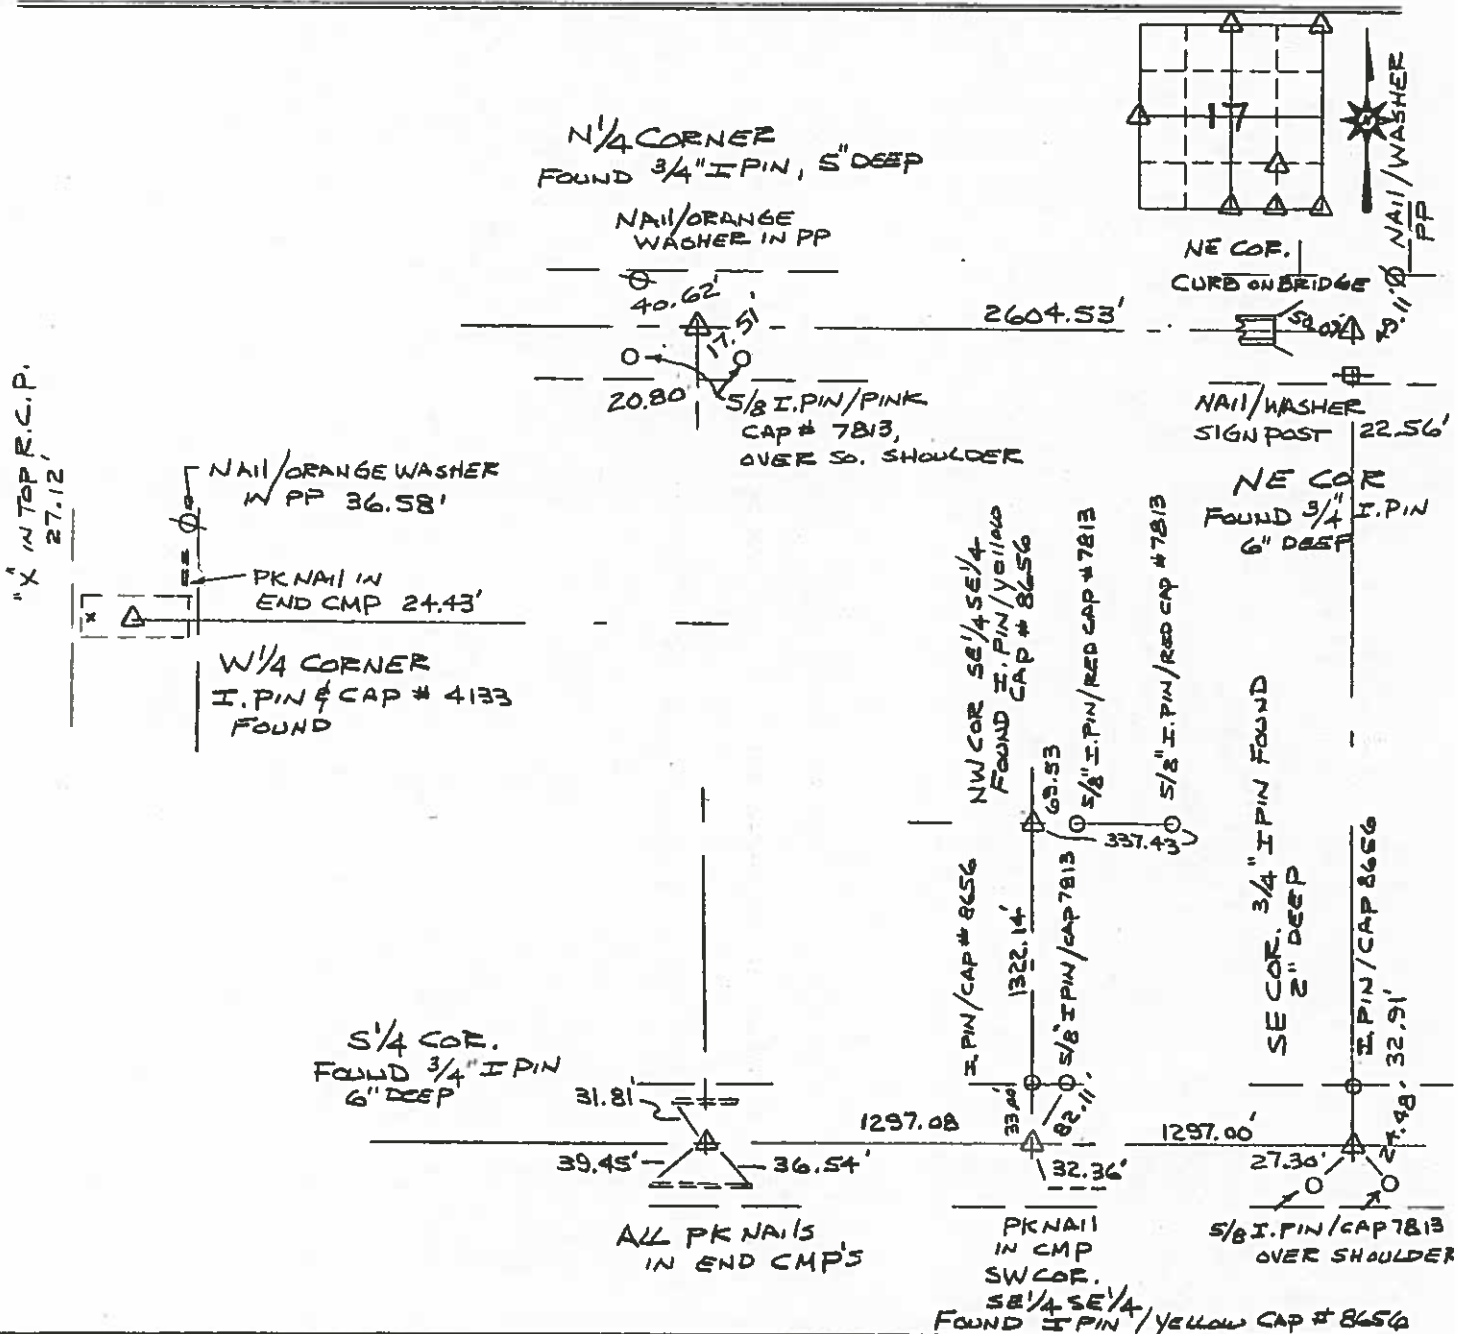 17
NAIL/WASHER
PP
N 1/4 CORNER
FOUND 3/4" I PIN, 5" DEEP
NAIL/ORANGE
WASHER IN PP
40.62'
17.51'
20.80'
5/8 I.PIN/PINK
CAP # 7813,
OVER SO. SHOULDER
2604.53'
NE COR.
CURB ON BRIDGE
NAIL/WASHER
SIGN POST 22.56'
NE COR
FOUND 3/4" I.PIN
6" DEEP
"X" IN TOP R.C.P.
27.12'
NAIL/ORANGE WASHER
IN PP 36.58'
PK NAIL IN
END CMP 24.43'
x
W 1/4 CORNER
I. PIN & CAP # 4133
FOUND
NW COR SE 1/4 SE 1/4
FOUND I. PIN/YELLOW
CAP # 8656
69.53
5/8" I.PIN/RED CAP # 7813
5/8" I.PIN/RED CAP # 7813
337.43
I. PIN/CAP # 8656
1322.14'
5/8" I PIN/CAP 7813
SE COR. 3/4" I PIN FOUND
2" DEEP
I. PIN/CAP 8656
32.91'
S 1/4 COR.
FOUND 3/4" I PIN
6" DEEP
31.81'
39.45'
36.54'
ALL PK NAILS
IN END CMP'S
1297.08
33.00'
82.11'
32.36'
PK NAIL
IN CMP
SW COR.
SE 1/4 SE 1/4
FOUND I PIN/YELLOW CAP # 8656
1297.00'
27.30'
5/8 I.PIN/CAP 7813
OVER SHOULDER